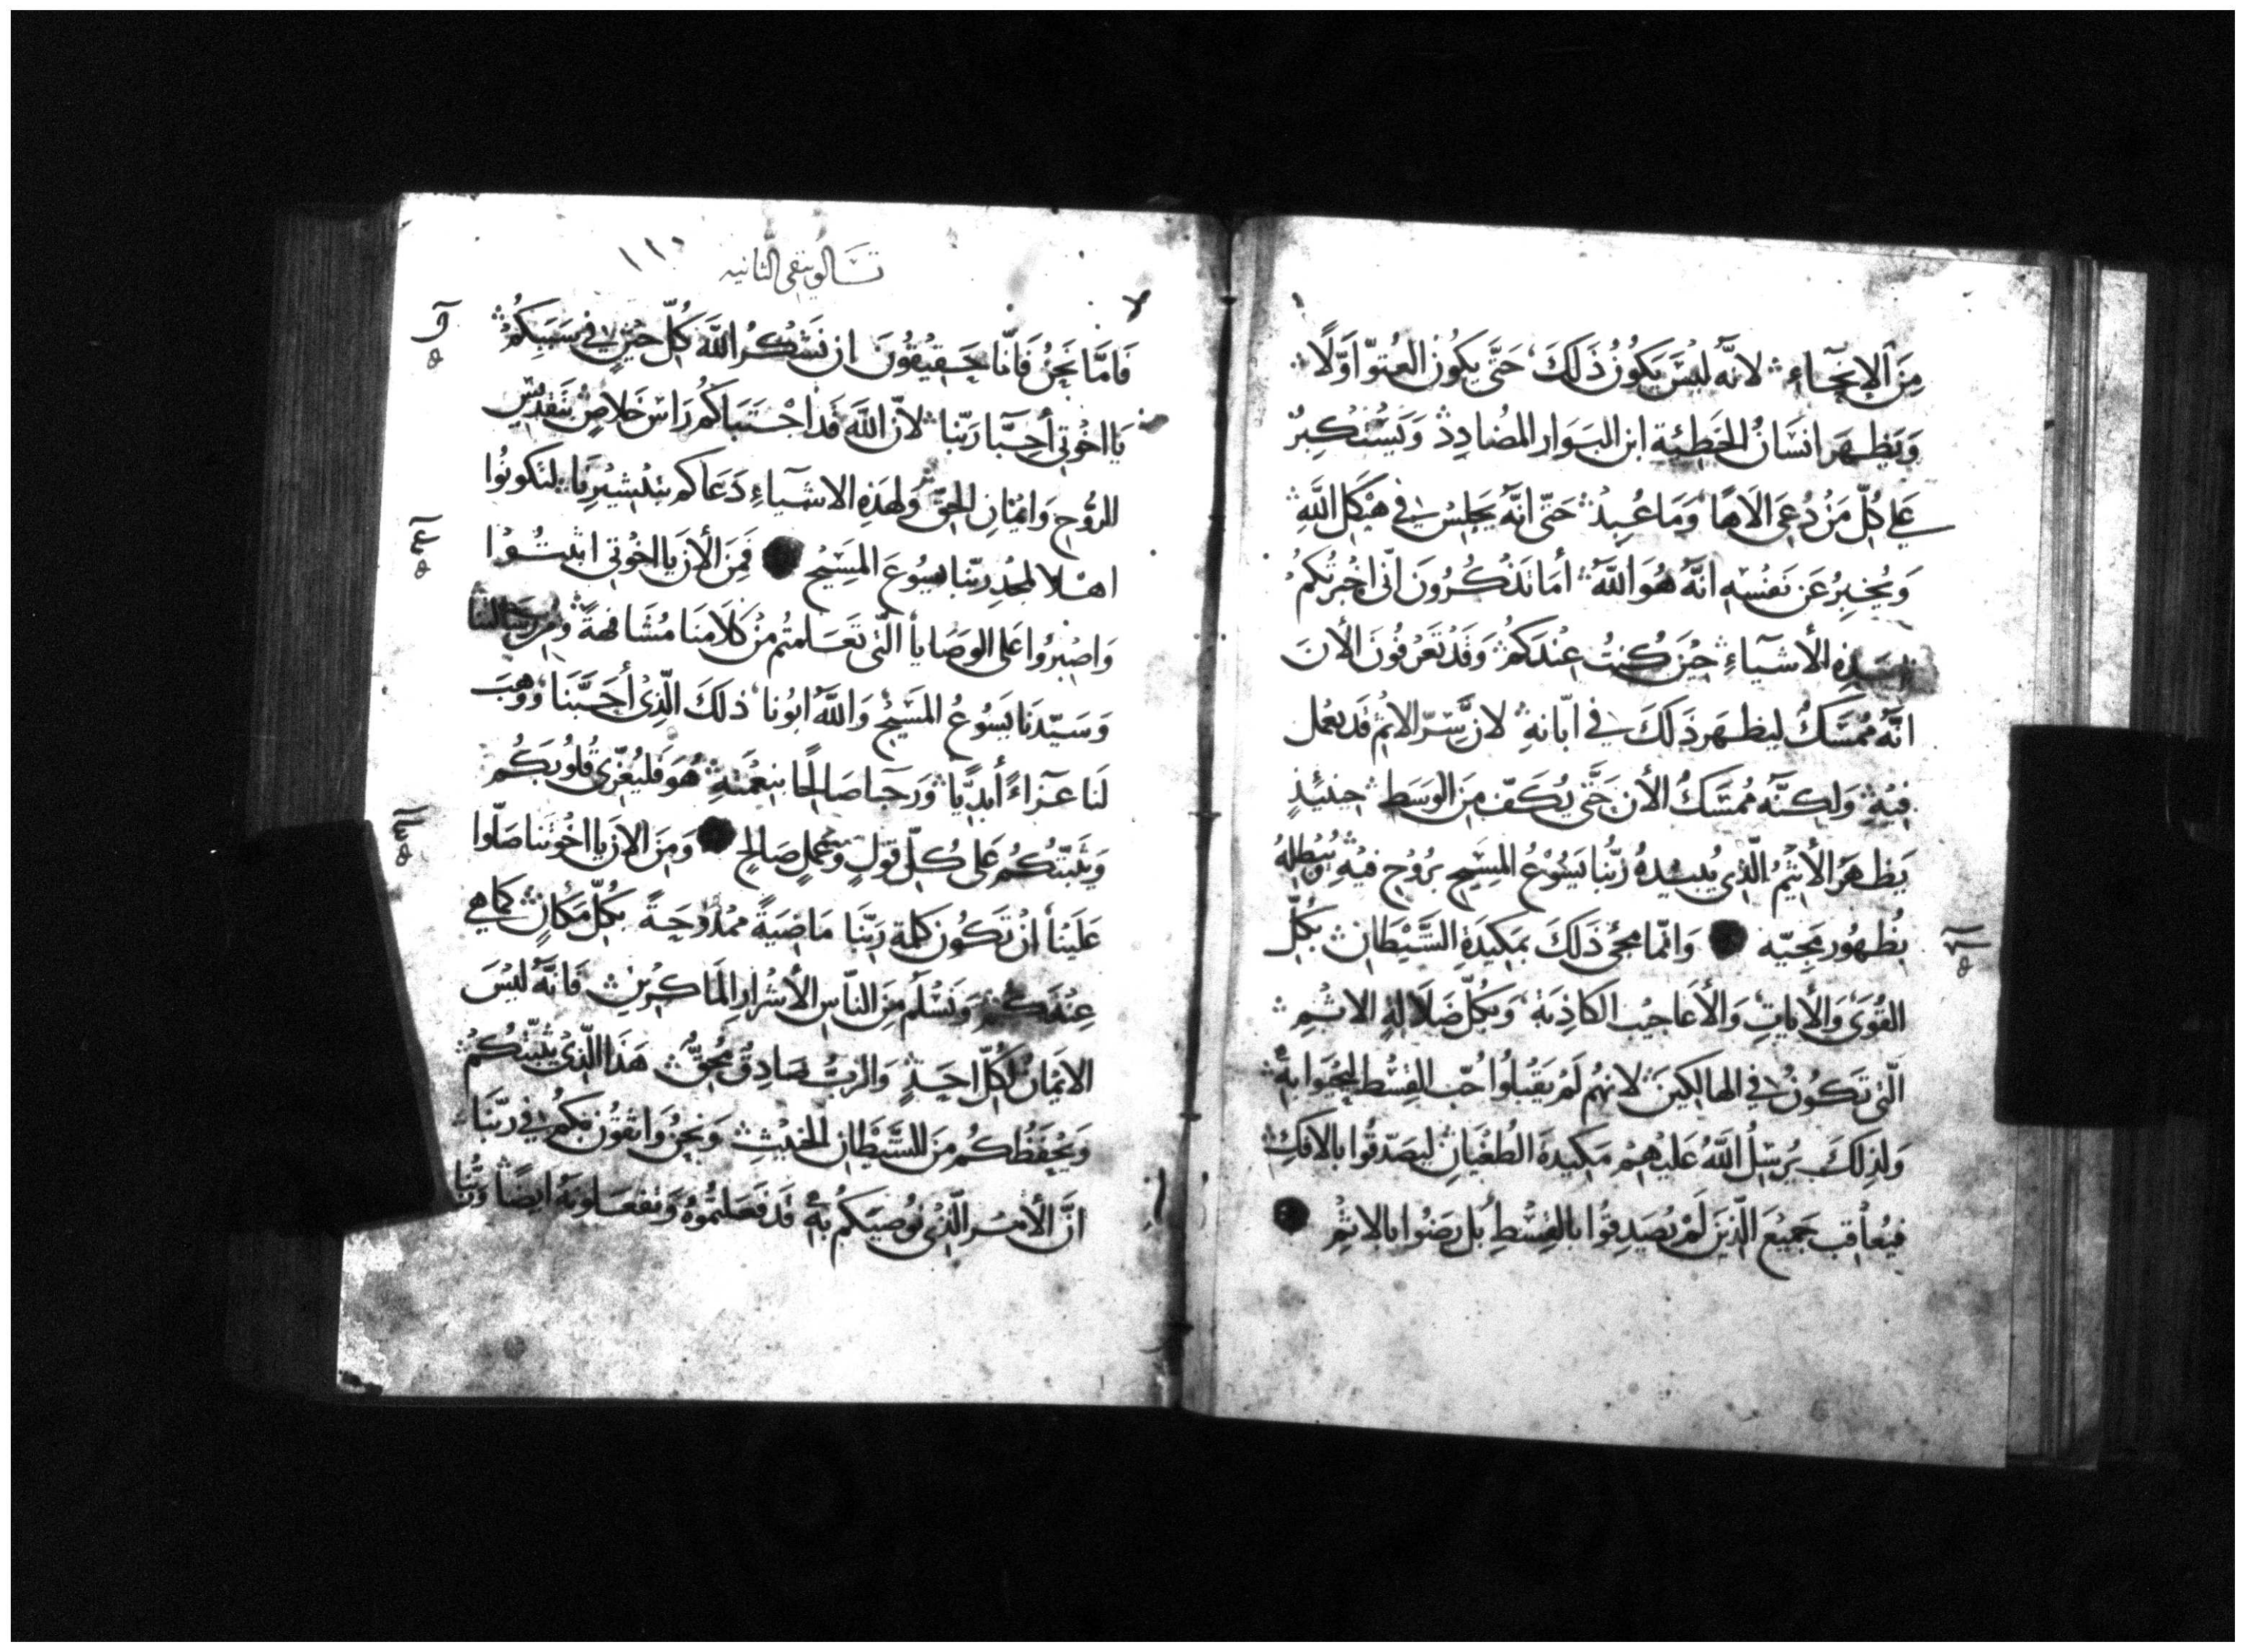 مِنَ الانحَاءِ لانّه ليْسَ يَكُونُ ذَلكَ حَتَّى يَكُون العُتوّ اوّلًا
وَيَظهَر انسَانُ الخَطِيئة ابن البَوَار المضَادِدْ وَيَسْتكبِرُ
عَلي كلّ مَنْ دُعِى الاهًا وَمَا عُبِدْ حَتّى انّه يَجلِسُ في هَيْكل اللَّهِ
وَيُخبِرُ عَن نَفسْهِ انّهُ هُوَ اللَّهُ أمَا تَذكُرُونَ انّى اخبرْتكمْ
بهَذِهِ الأشيَاءِ حِيْنَ كُنتُ عِنْدَكمْ وَقَدْ تَعرَفُونَ الأنَ
انّه مُمسَكٌ ليَظهَر ذَلكَ في ابّانهِ لانّ سِرّ الاثم قَد يعْمل
فيْهِ وَلكِنّه مُمسَكُ الأن حَتَّى يُكَفّ مِنَ الوَسَطِ حِينَئِذٍ
يَظهَرُ الأثيْمُ الّذِى يُبيْدهُ رَبُّنا يَسُوْعُ المسِيْح برُوْح فيْهِ يُبْطلهُ
بظهُور مَجِيّه وَانّما مجىُ ذَلكَ بمَكِيدَةِ الشَّيْطَان بكلّ
القُوَى وَالأيات وَالأعَاجيْب الكاذِبَة وَبكلّ ضَلَالةِ الاثمْ
الّتى تَكُونُ في الهَالكينَ لانهُم لَمْ يَقبَلوُا حُبّ القِسْطِ ليَحيَوا بهِ
وَلذِلكَ يُرسِلُ اللهُ عَليْهِمْ مَكيْدةَ الطُغْيَان ليُصَدّقُوا بالافكِ
فيُعاقب جَميْعَ الّذِينَ لَمْ يُصَدِقُوا بالقِسْطِ بَل رَضوُا بالاثمْ
تسَالونيقى الثانيه ١١٠
فَامّا نَحنُ فَانّا حَقِيقُوْنَ ان نَشكُرُ اللَّهَ كُلّ حِيْنٍ في سَبَبِكُمْ
يَا اخوُتي أحِبَّا رَبّنا لانّ اللَّه قَد اجْتَبَاكُم رَاسَ خَلاصٍ بتقدِيْس
الرُّوح وَايْمَان الحَقّ وَلهَذِهِ الاشيَاءِ دَعَاكم بتبشيْرِنَا لتكونُوا
اهْلا لمجدِ ربّنا يسُوعَ المَسيْح فَمِنَ الأن يَا اخوُتي اثبتُوا
وَاصْبرُوا عَلى الوَصَايا الّتى تَعَلمتُم مِنْ كلَامنَا مُشَافهةً وَمِن رسَالتنا
وَسَيّدَنا يَسُوعُ المَسيْح وَاللَّهُ ابُونا ذلكَ الّذِى أحَبَّنَا وَوَهبَ
لنَا عَزاءً أبدِيًّا وَرَجَا صَالحًا بنعْمَتهِ هُوَ فَليُعَزّى قُلوُبَكُم
وَيثبّتكُم عَلى كُلّ قولٍ وَعَملٍ صَالحٍ وَمنَ الانَ يَا اخوُتنا صَلّوا
عَلَينا انْ تَكُون كلمة رَبّنَا مَاضيَةً ممْدُوحَةً بكلّ مَكانٍ كماهي
عِنْدكُمْ وَنَسْلَم مِنَ النّاسِ الأشْرَار المَاكرِيْن فَانّهُ ليْسَ
الايْمَانُ لكُلّ احَدٍ وَالربُّ صَادِقٌ مُحِقٌّ هَذا الّذِى يثبّتكُمْ
وَيَحْفَظكُم مِنَ الشَّيْطَان الخبيْثِ وَنحنُ وَاثقوُن بكُمْ في رَبّنَا
انّ الأمر الّذِى نُوصِيكُم بهِ قَد فَعَلتُموُهُ وَتفعَلونهُ ايضًا وَربُّنا